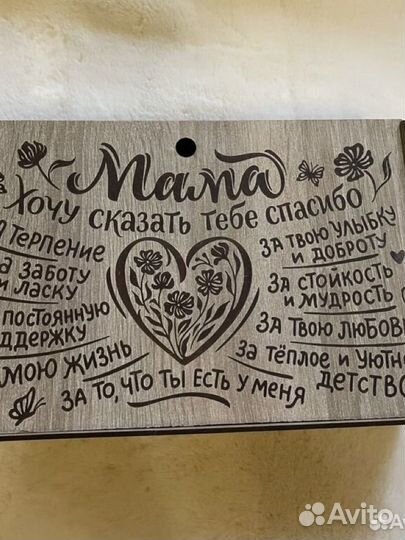 Мама
Хочу сказать тебе спасибо
терпение
заботу
и ласку
постоянную
ддержку
мою жизнь
за то, что ты есть у меня
за твою улыбку
и доброту
за стойкость
и мудрость
за твою любовь
за тёплое и уютно
детство
Avito